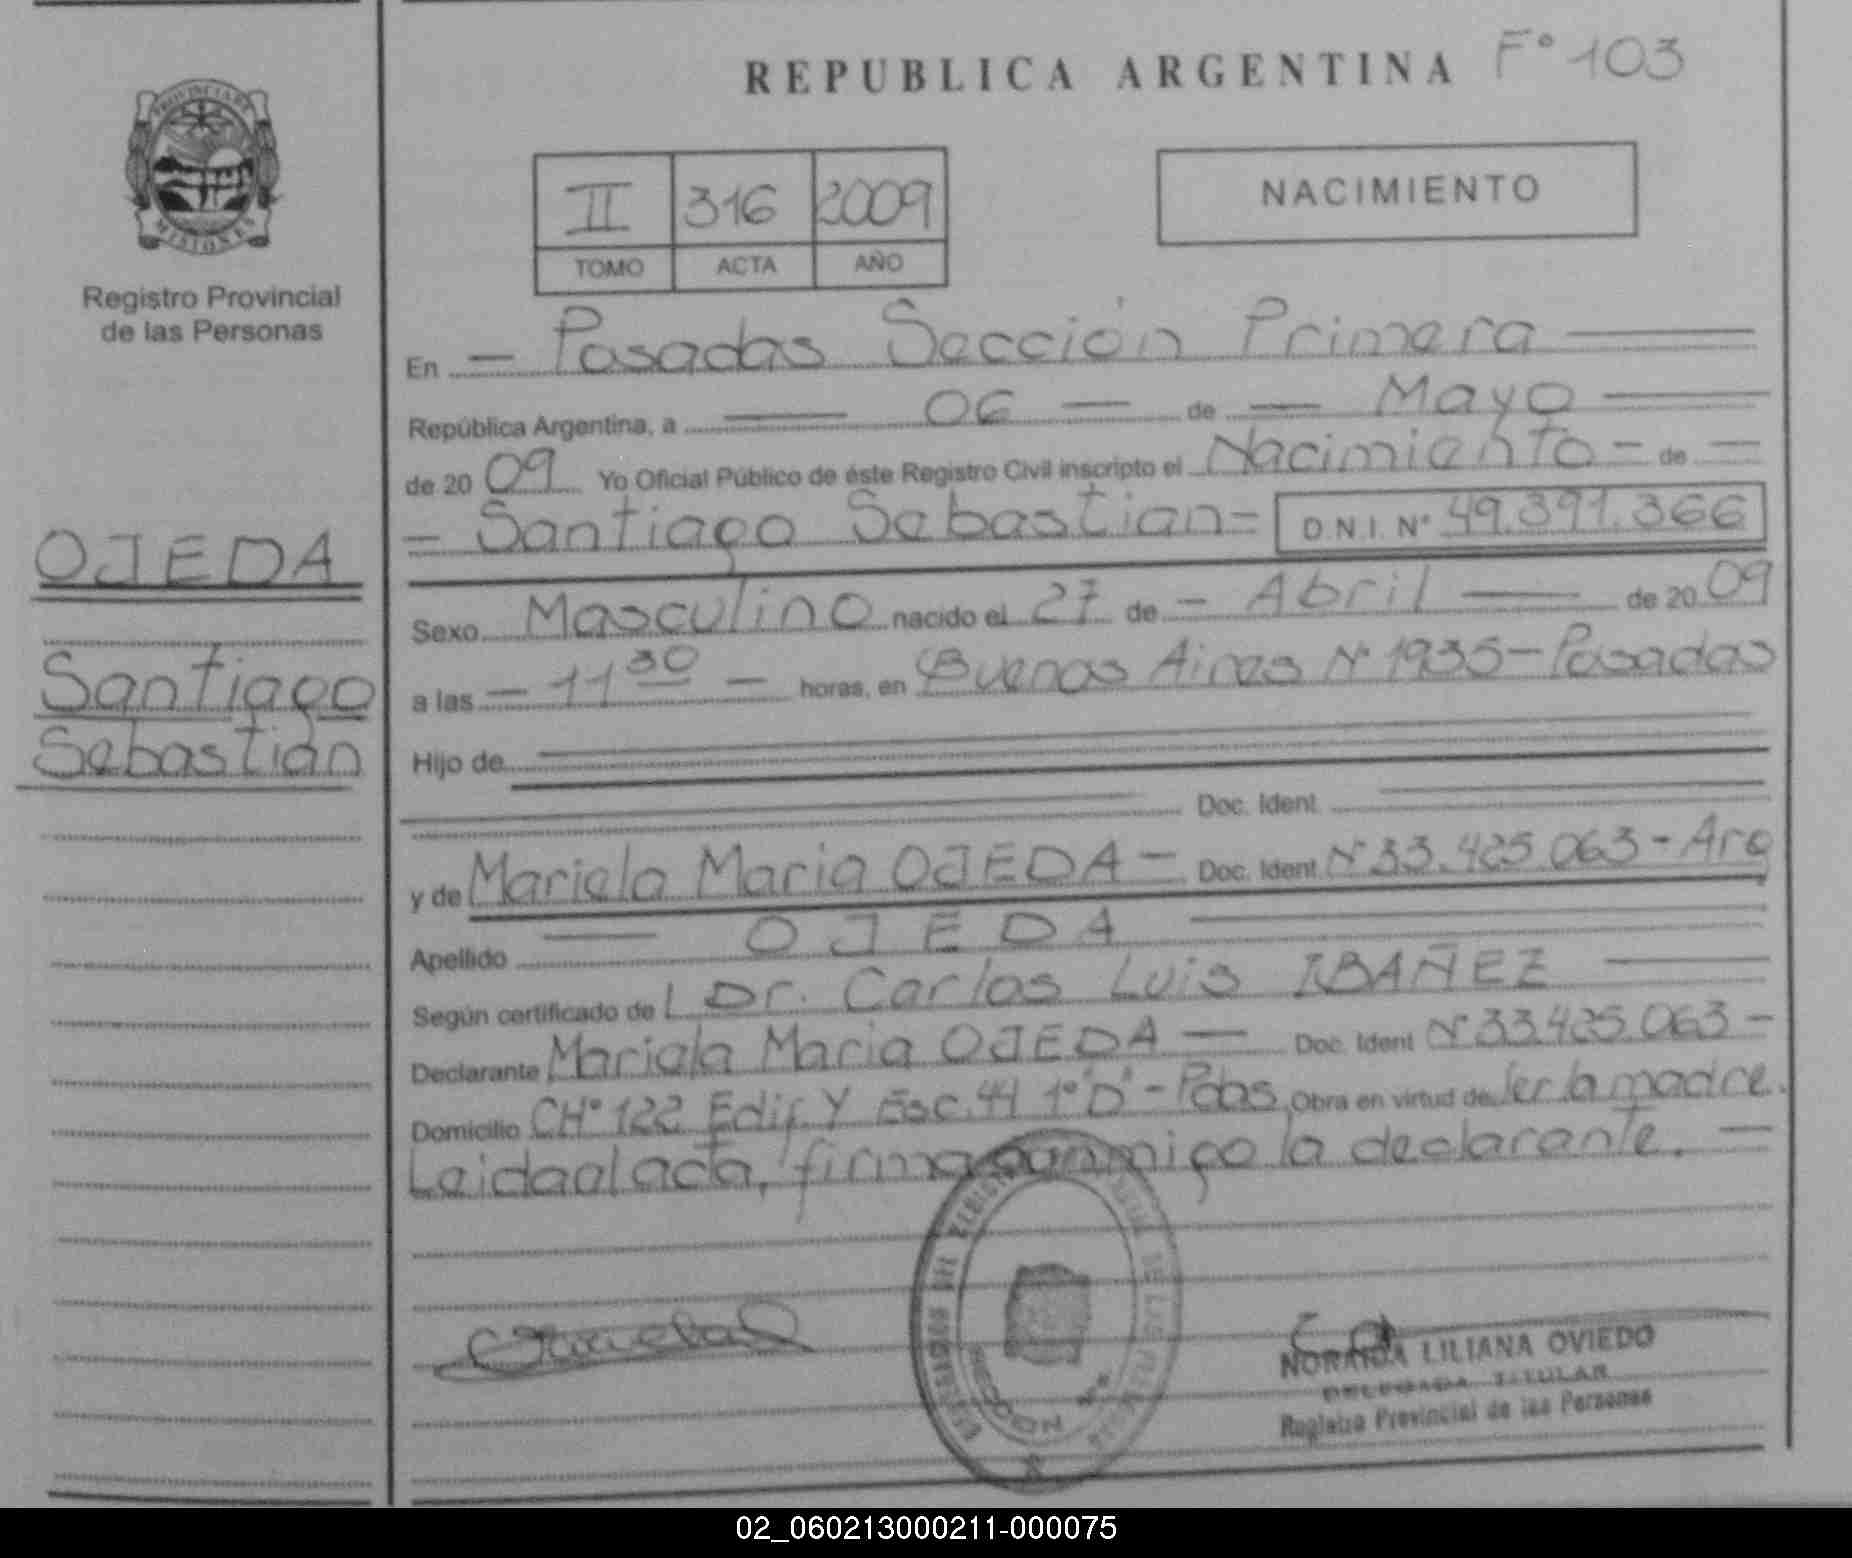 REPUBLICA ARGENTINA F° 103
PROVINCIA DE
MISIONES
Registro Provincial
de las Personas
II 316 2009
TOMO ACTA AÑO
NACIMIENTO
OJEDA
Santiago
Sebastián
En — Posadas Sección Primera
República Argentina, a — 06 — de — Mayo
de 2009 Yo Oficial Público de éste Registro Civil inscripto el Nacimiento - de =
= Santiago Sebastian = D.N.I. N° 49.391.366
Sexo Masculino nacido el 27 de - Abril — de 2009
a las — 11 30 — horas, en Buenos Aires N° 1935 - Posadas
Hijo de
Doc. Ident.
y de Mariela Maria OJEDA — Doc. Ident. N° 33.425.063 - Arg
Apellido — OJEDA
Según certificado de Dr. Carlos Luis IBAÑEZ
Declarante Mariela Maria OJEDA — Doc. Ident N° 33.425.063 -
Domicilio CH° 122 Edif. Y Esc. 44 1° "D" - Pdas Obra en virtud de ser la madre.
Leida al acta, firma conmigo la declarante. =
SECCION
NORAIDA LILIANA OVIEDO
DELEGADA TITULAR
Registro Provincial de las Personas
02_060213000211-000075